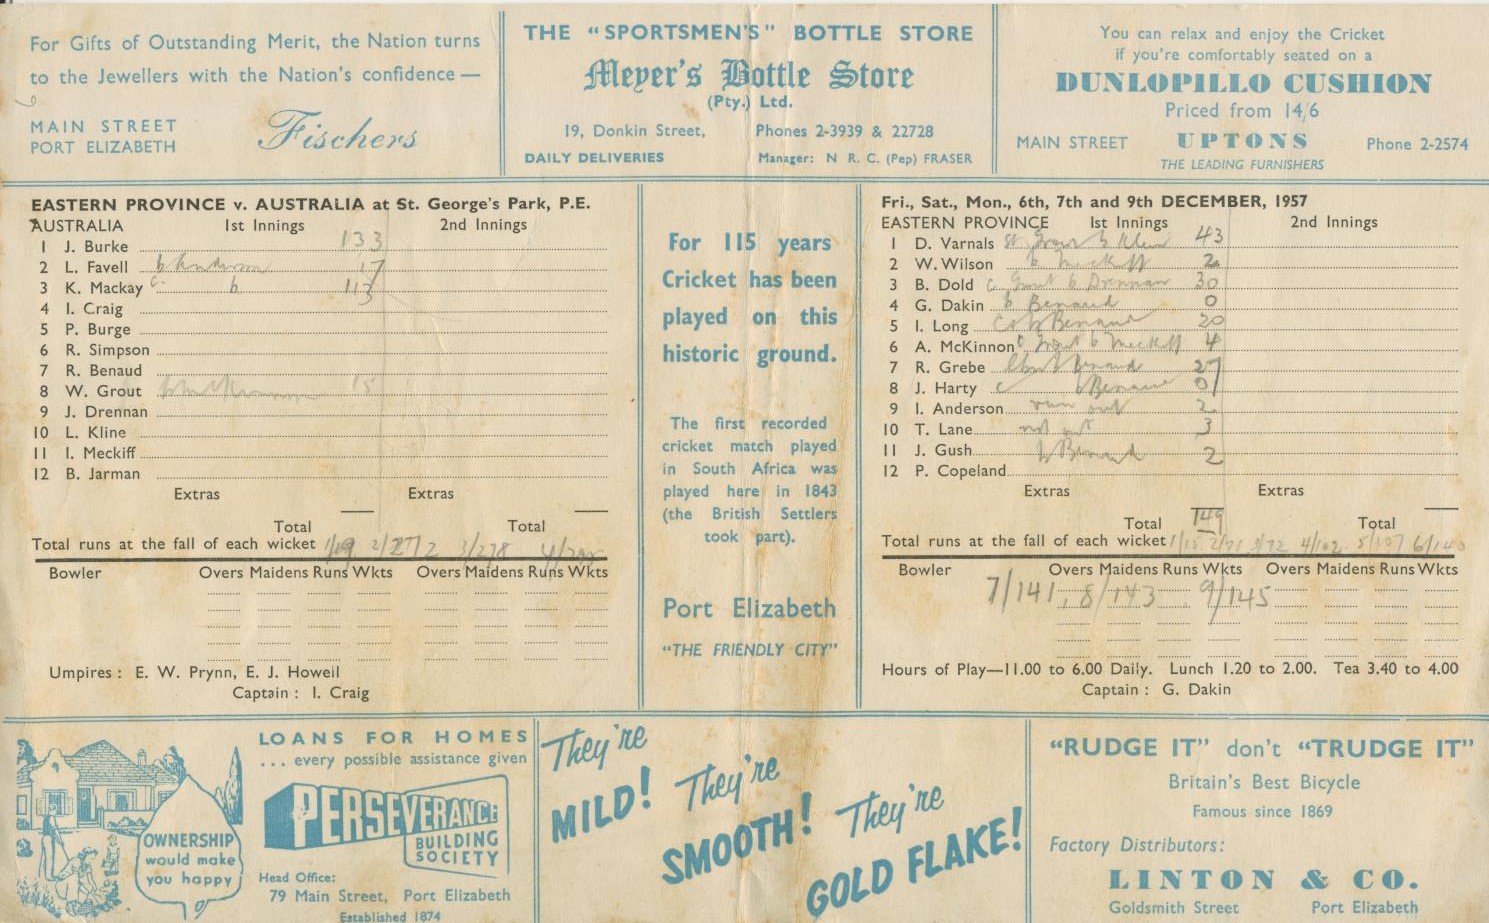 For Gifts of Outstanding Merit, the Nation turns
to the Jewellers with the Nation's confidence —
MAIN STREET
PORT ELIZABETH
Fischers
THE "SPORTSMEN'S" BOTTLE STORE
Meyer's Bottle Store
(Pty.) Ltd.
19, Donkin Street, Phones 2-3939 & 22728
DAILY DELIVERIES Manager: N R. C. (Pep) FRASER
You can relax and enjoy the Cricket
if you're comfortably seated on a
DUNLOPILLO CUSHION
Priced from 14/6
MAIN STREET UPTONS Phone 2-2574
THE LEADING FURNISHERS
EASTERN PROVINCE v. AUSTRALIA at St. George's Park, P.E.
AUSTRALIA 1st Innings 2nd Innings
1 J. Burke 133
2 L. Favell b Anderson 17
3 K. Mackay c b 113
4 I. Craig
5 P. Burge
6 R. Simpson
7 R. Benaud
8 W. Grout b McKinnon 15
9 J. Drennan
10 L. Kline
11 I. Meckiff
12 B. Jarman
Extras Extras
Total Total
Total runs at the fall of each wicket 1/19 2/272 3/278
Bowler Overs Maidens Runs Wkts Overs Maidens Runs Wkts
Umpires : E. W. Prynn, E. J. Howell
Captain : I. Craig
For 115 years
Cricket has been
played on this
historic ground.
The first recorded
cricket match played
in South Africa was
played here in 1843
(the British Settlers
took part).
Port Elizabeth
"THE FRIENDLY CITY"
Fri., Sat., Mon., 6th, 7th and 9th DECEMBER, 1957
EASTERN PROVINCE 1st Innings 2nd Innings
1 D. Varnals st Grout b Kline 43
2 W. Wilson b Meckiff 2
3 B. Dold c Grout b Drennan 30
4 G. Dakin b Benaud 0
5 I. Long c & b Benaud 20
6 A. McKinnon c Grout b Meckiff 4
7 R. Grebe b Benaud 27
8 J. Harty c b Benaud 0
9 I. Anderson run out 2
10 T. Lane not out 3
11 J. Gush b Benaud 2
12 P. Copeland
Extras Extras
149
Total Total
Total runs at the fall of each wicket 1/15 2/71 3/72 4/102 5/107 6/140
Bowler Overs Maidens Runs Wkts Overs Maidens Runs Wkts
7/141, 8/143 9/145
Hours of Play—11.00 to 6.00 Daily. Lunch 1.20 to 2.00. Tea 3.40 to 4.00
Captain : G. Dakin
OWNERSHIP
would make
you happy
LOANS FOR HOMES
. . . every possible assistance given
PERSEVERANCE
BUILDING
SOCIETY
Head Office:
79 Main Street, Port Elizabeth
Established 1874
They're
MILD! They're
SMOOTH! They're
GOLD FLAKE!
"RUDGE IT" don't "TRUDGE IT"
Britain's Best Bicycle
Famous since 1869
Factory Distributors:
LINTON & CO.
Goldsmith Street Port Elizabeth